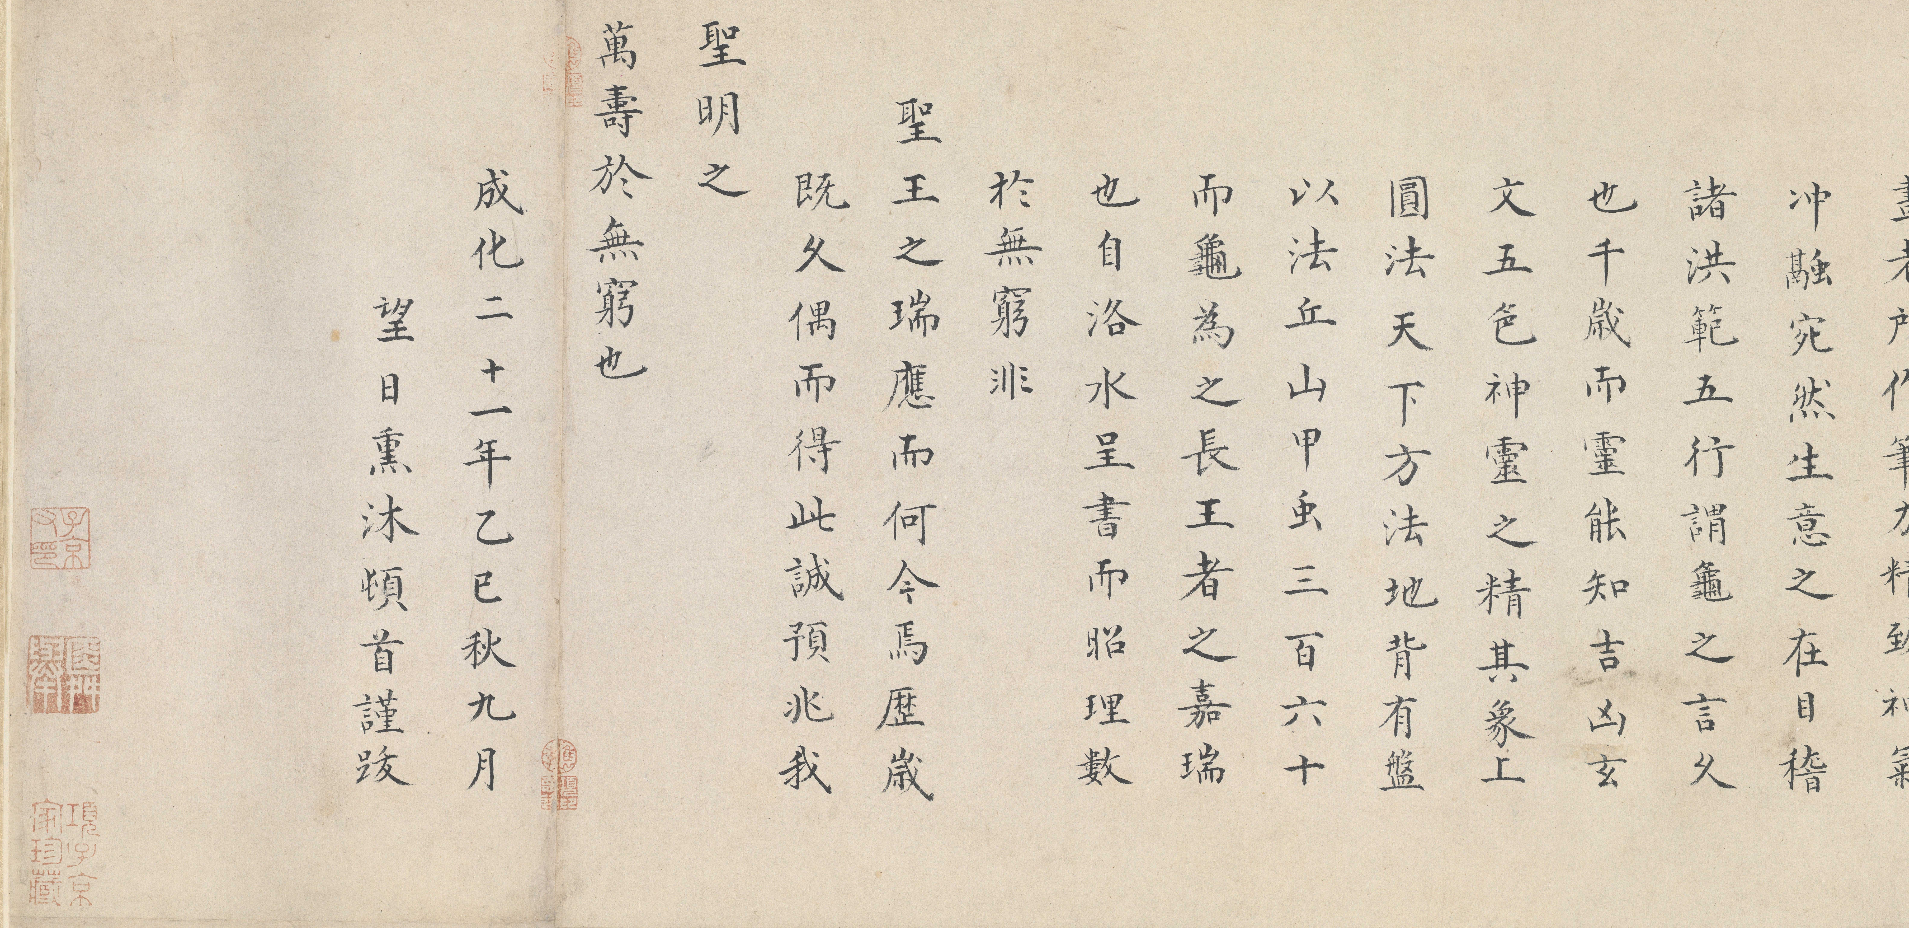 畫者所作筆力精致神氣
冲融宛然生意之在目稽
諸洪範五行謂龜之言久
也千歲而靈能知吉凶玄
文五色神靈之精其象上
圓法天下方法地背有盤
以法丘山甲虫三百六十
而龜為之長王者之嘉瑞
也自洛水呈書而昭理數
於無窮非
聖王之瑞應而何今焉歷歲
既久偶而得此誠預兆我
聖明之
萬壽於無窮也
成化二十一年乙巳秋九月
望日熏沐頓首謹跋
子京父印
項子京家珍藏